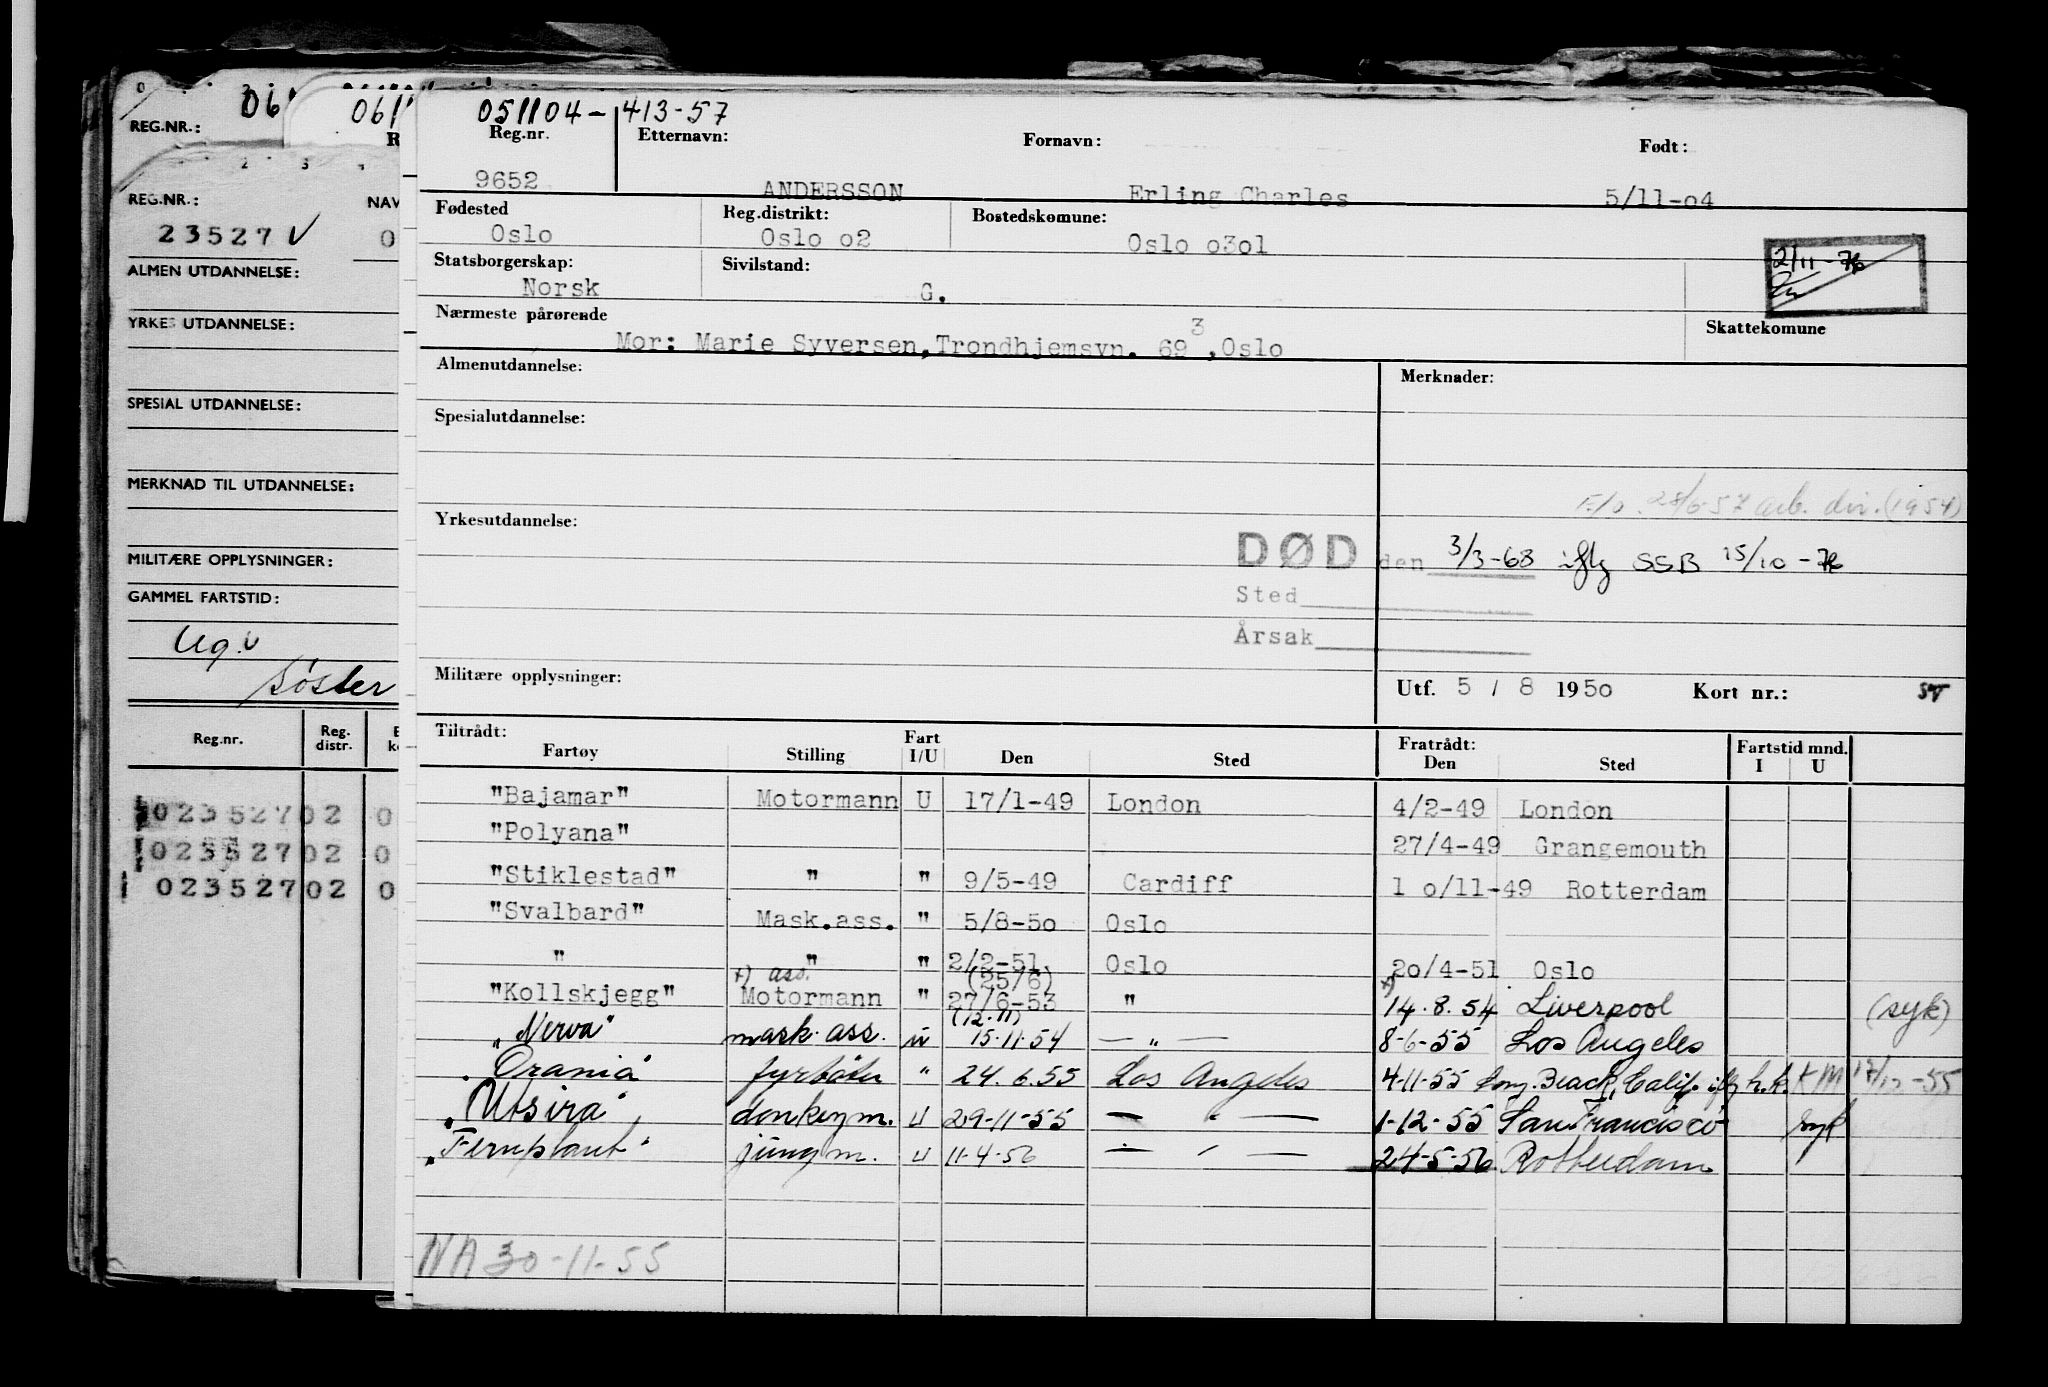 06
061
051104-413-57
REG.NR.:
Reg.nr. Etternavn: Fornavn: Født:
9652 ANDERSSON Erling Charles 5/11-04
REG.NR.: NAV
23527 V 0
Fødested Reg.distrikt: Bostedskomune:
Oslo Oslo o2 Oslo o3ol
ALMEN UTDANNELSE:
Statsborgerskap: Sivilstand:
Norsk G.
2/11-76
Nærmeste pårørende Skattekomune
Mor: Marie Syversen,Trondhjemsvn. 69 3 ,Oslo
YRKES UTDANNELSE:
Almenutdannelse: Merknader:
SPESIAL UTDANNELSE:
Spesialutdannelse:
MERKNAD TIL UTDANNELSE:
F/o. 28/6-57 arb. div. (1954)
Yrkesutdannelse:
DØD den 3/3-68 iflg SSB 15/10-76
MILITÆRE OPPLYSNINGER:
Sted
GAMMEL FARTSTID:
Årsak
Ug. v
Søster
Militære opplysninger: Utf. 5 / 8 1950 Kort nr.:
Reg.nr. Reg. distr.
Tiltrådt: Fratrådt: Fartstid mnd.
Fartøy Stilling Fart I/U Den Sted Den Sted I U
"Bajamar" Motormann U 17/1-49 London 4/2-49 London
02352702 0
"Polyana" 27/4-49 Grangemouth
02352702 0
"Stiklestad" " " 9/5-49 Cardiff 1 0/11-49 Rotterdam
02352702 0
"Svalbard" Mask.ass. " 5/8-50 Oslo
" " " 2/2-51 Oslo 20/4-51 Oslo
+) ass. (25/6) +)
"Kollskjegg" Motormann " 27/6-53 " 14.8.54 Liverpool (syk)
(12.11)
"Nerva" mask.ass. u 15.11.54 — " — 8-6-55 Los Angeles
"Orania" fyrbøter " 24.6.55 Los Angeles 4-11-55 Long Beach, Calif. iflg h.k. KM 17/12-55
"Utsira" donkeym. U 29-11-55 — " — 1-12-55 San Francisco syk
"Fernplant" jungm. U 11-4-56 — " — 24-5-56 Rotterdam
NA 30-11-55